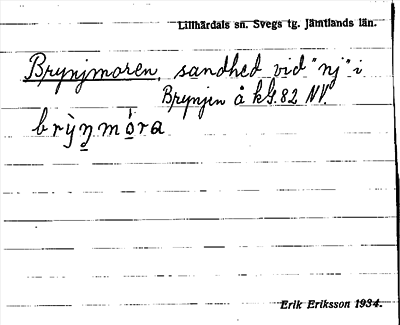 Lillhärdals sn. Svegs tg. Jämtlands län.
Brynjmoren, sandhed vid "nj" i
Brynjen å kG. 82 NV.
brỳn̠mo̠ra
Erik Eriksson 1934.